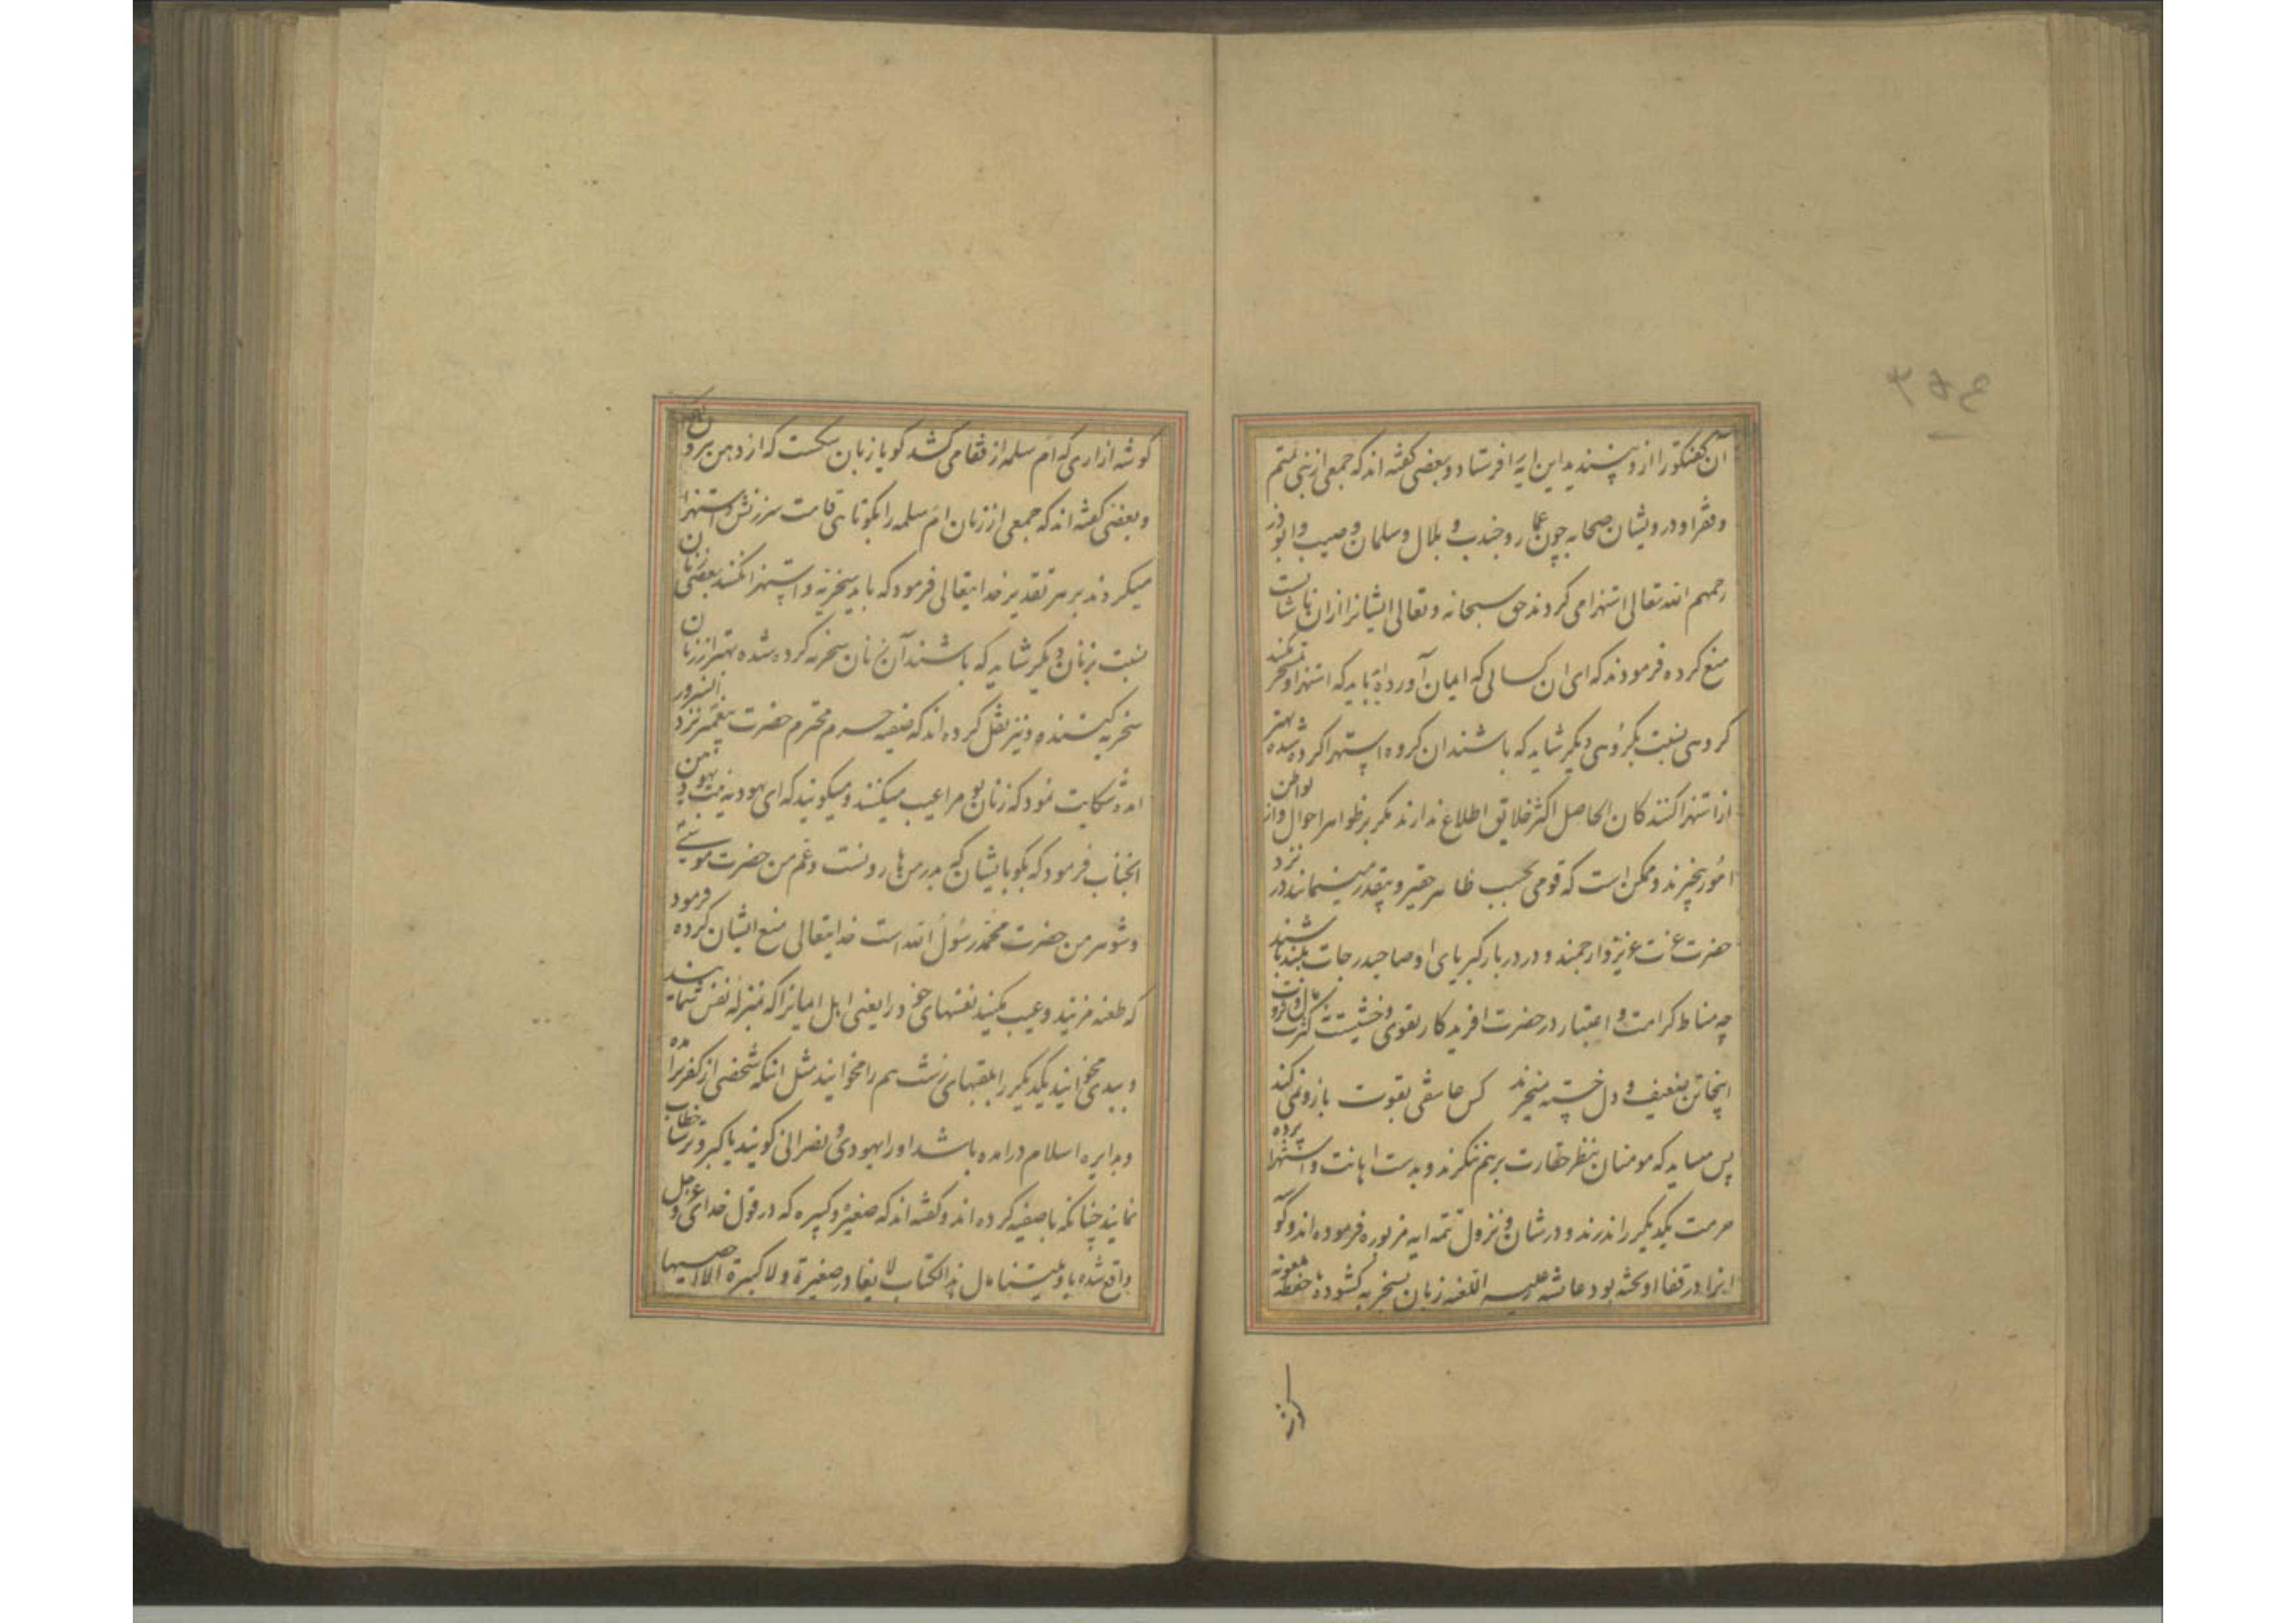 ۳۵۴
آن گفتگو را ازو نپسندید این ایه را فرستاد و بعضی گفته اند که جمعی از بنی تمیم
و فقرا و درویشان صحابه چون عمار و جندب و بلال و سلمان و صهیب و ابوذر
رحمهم الله تعالی استهزا می کردند حق سبحانه و تعالی ایشانرا ازان ناشایست
منع کرده فرمودند که ای ان کسانی که ایمان آورده اید باید که استهزا و تمسخر نکنند
گروهی نسبت بگروهی دیگر شاید که باشند ان گروه استهزا کرده شده بهتر
از استهزا کنندکان الحاصل اکثر خلایق اطلاع ندارند مگر بر ظواهر احوال و از بواطن
امور بیخبرند و ممکن است که قومی بحسب ظاهر حقیر و بیقدر مینمایند در نزد
حضرت عزت عزیز و ارجمند و در دربار کبریای او صاحب درجات بلند باشند
چه مناط کرامت و اعتبار در حضرت افریدکار تقوی و خشیتست کثرت مال و ثروت
اینجا تن ضعیف و دل خسته میخرند کس عاشقی بقوت بازو نمی کند
پس میباید که مومنان بنظر حقارت برهم ننگرند و بدست اهانت و استهزا پرده
حرمت یکدیگر را ندرند و در شان نزول تتمه ایه مزبوره فرموده اند و گو
ازار در قفا اویخته بود عایشه علیه اللعنه زبان بسخریه گشوده با حفصه ملعونه
گوشه ازاری که ام سلمه از قفا می کشد گویا زبان سگست که از دهن بیرون
و بعضی گفته اند که جمعی از زنان ام سلمه را بکوتاهی قامت سرزنش و استهزا
میکردند بر هر تقدیر خدایتعالی فرمود که باید سخریه و استهزا نکنند بعضی زنان
نسبت بزنان دیگر شاید که باشند آن زنان سخریه کرده شده بهتر از زنان
سخریه کننده و نیز نقل کرده اند که صفیه حرم محترم حضرت پیغمبر نزد انسرور
امد و شکایت نمود که زنان تو مرا عیب میکنند و میگویند که ای یهودیه بنت یهودین
انجناب فرمود که بگو بایشان که پدر من هارونست و عم من حضرت موسی
و شوهر من حضرت محمد رسول الله است خدایتعالی منع ایشان کرده فرمود
که طعنه مزنید و عیب مکنید نفسهای خود را یعنی اهل ایمانرا که بمنزله نفس شمایند
و ببدی مخوانید یکدیگر را بلقبهای زشت هم را مخوانید مثل انکه شخصی از کفر برامده
و بدایره اسلام درامده باشد او را یهودی و نصرانی گویند یا گبر و ترسا خطاب
نمایند چنانکه با صفیه کرده اند و گفته اند که صغیره و کبیره که در قول خدای عز و جل
واقع شده یا ویلتنا مال هذا الکتاب لا یغادر صغیرة و لا کبیرة الا احصیها